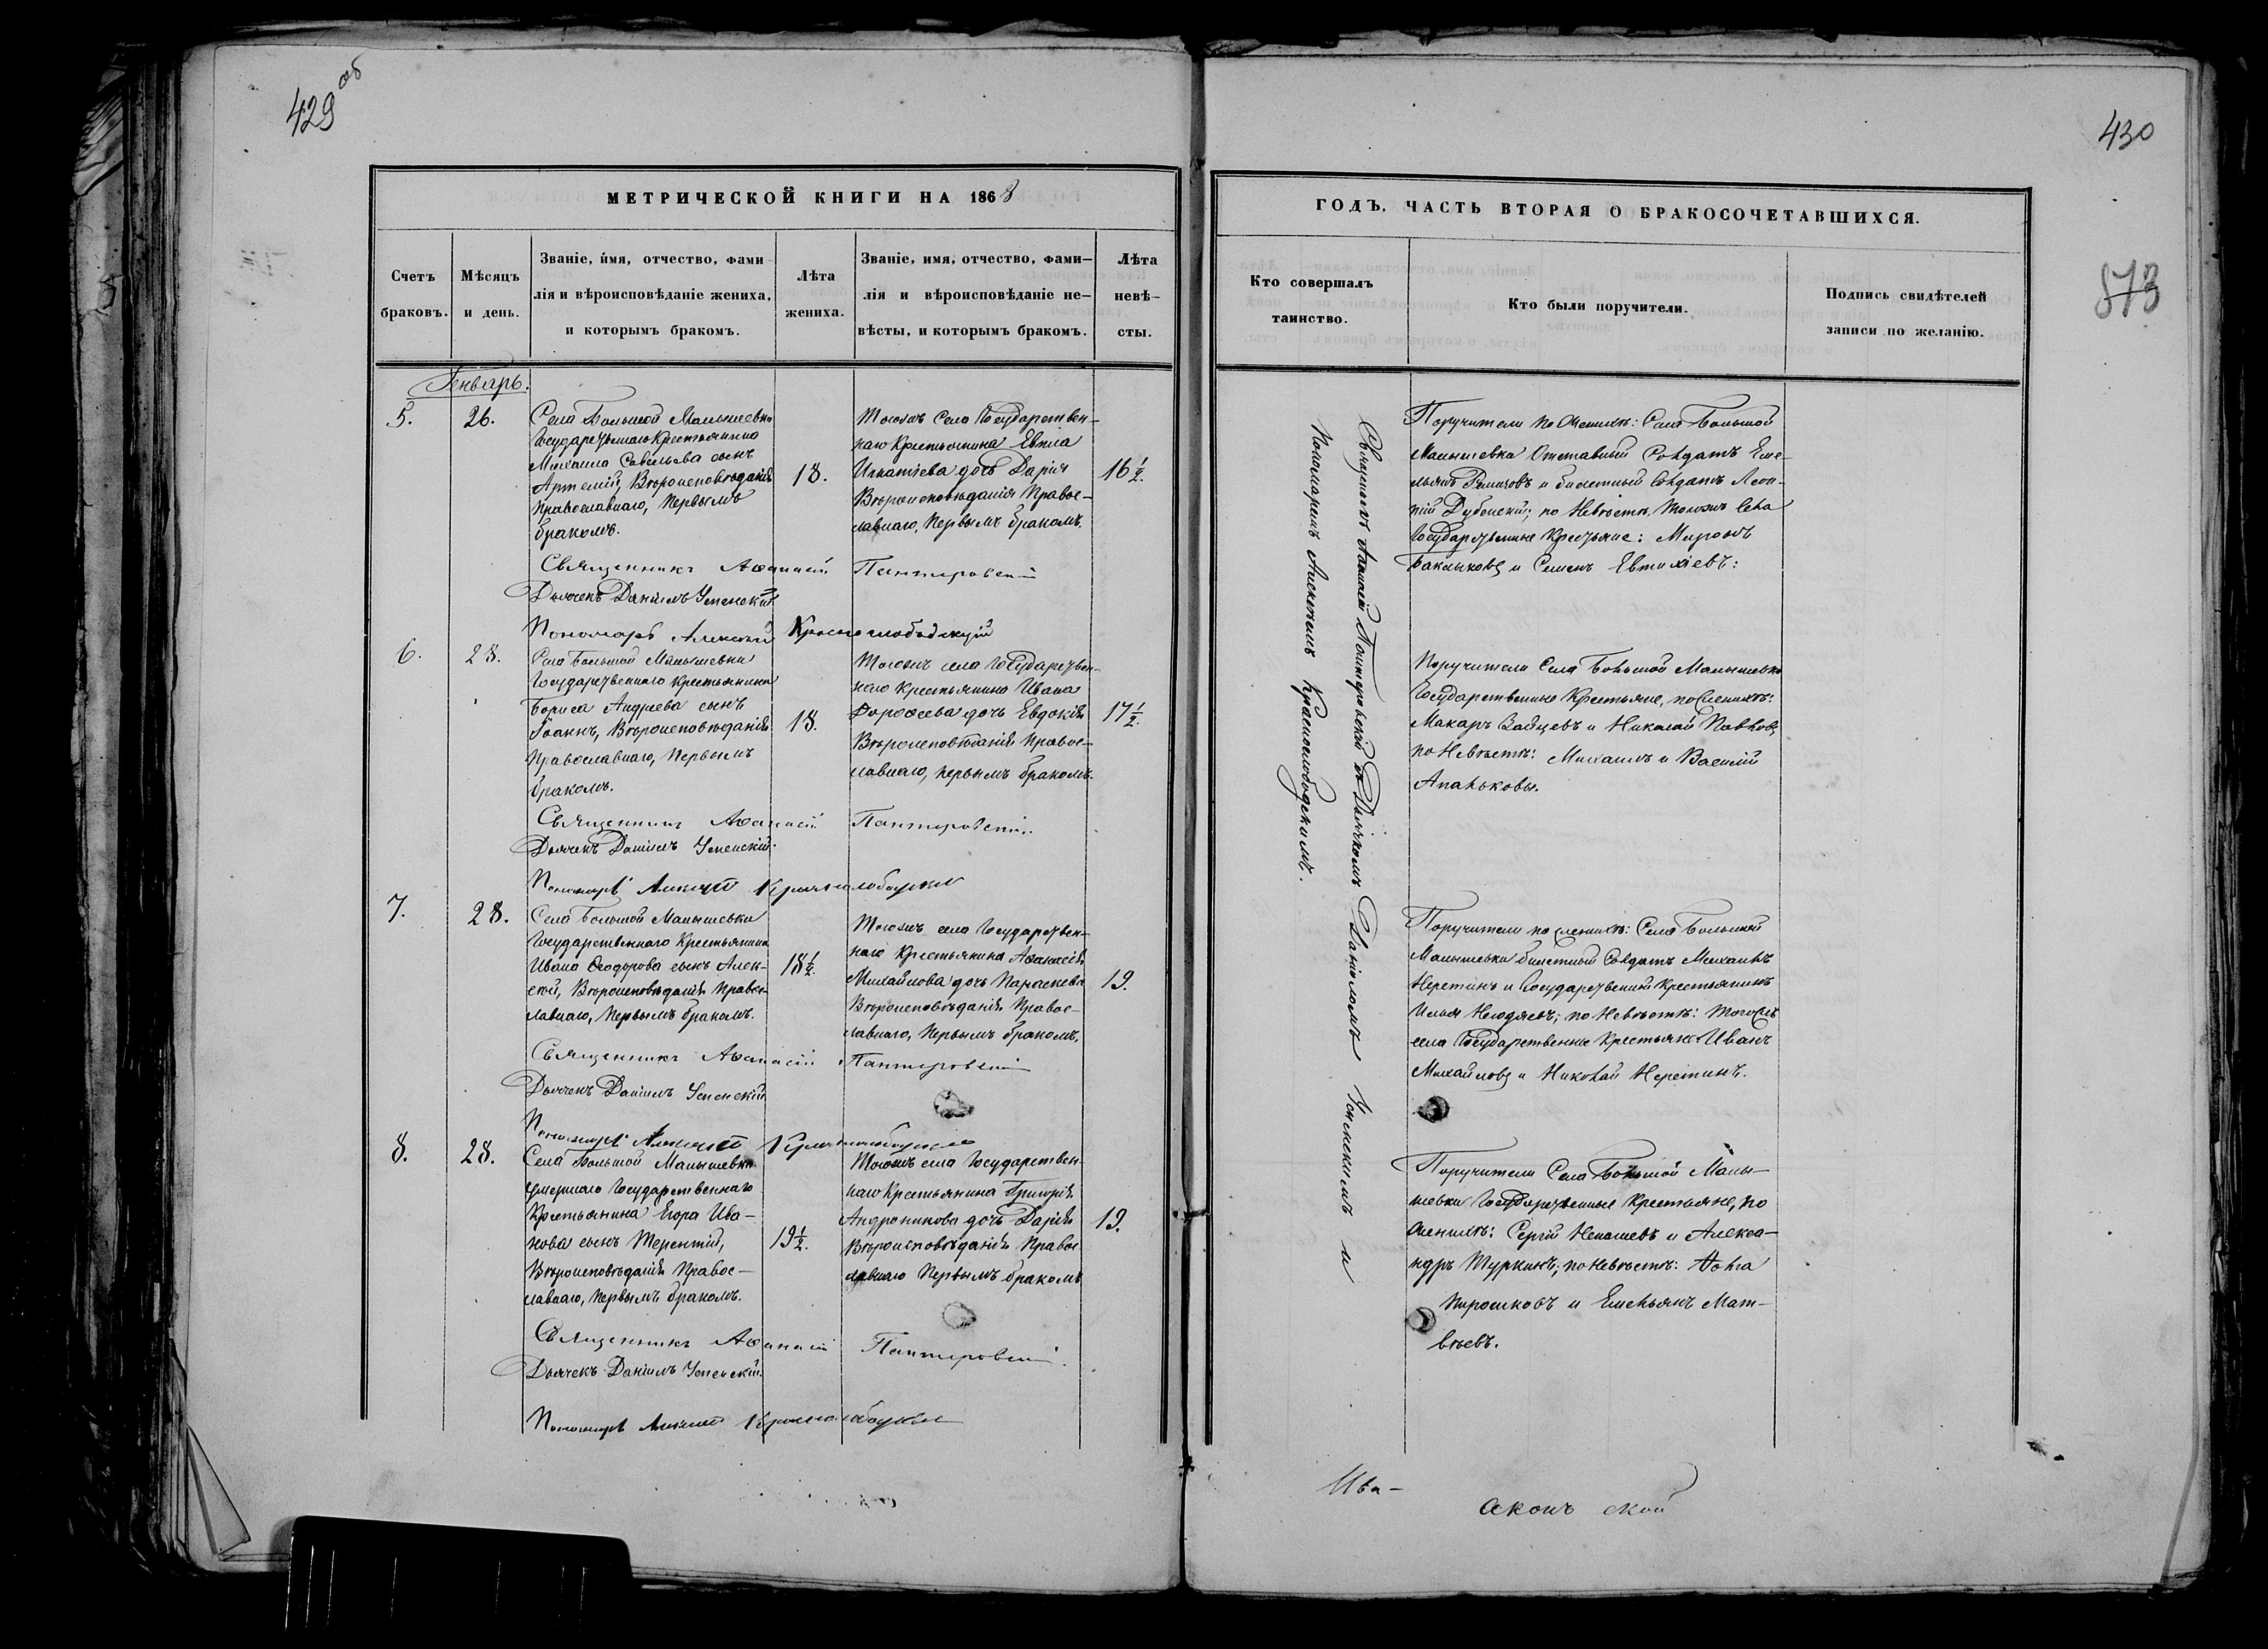 429 об
МЕТРИЧЕСКОЙ КНИГИ НА 1868
Счетъ браковъ.
Мѣсяцъ и день.
Званіе, имя, отчество, фами
лія и вѣроисповѣданіе жениха,
и которымъ бракомъ.
Лѣта жениха.
Званіе, имя, отчество, фами—
лія и вѣроисповѣданіе не—
вѣсты, и которымъ бракомъ.
Лѣта невѣ—
сты.
Генварь.
5.
26.
Села Большой Малышевки
Государственнаго Крестьянина
Михаила Савельева сынъ
Артемій, Вѣроисповѣданія
Православнаго, Первымъ
бракомъ.
18.
Тогожъ Села Государствен-
наго Крестьянина
Игнатіева дочь Дарія
Вѣроисповѣданія Правос-
лавнаго, Первымъ бракомъ.
16 ½.
Священникъ Аѳанасій Пантеровскій
Дьячекъ Даніилъ Успенскій
Пономарь Алексѣй Краснослободскій
6.
28.
Села Большой Малышевки
Государственнаго Крестьянина
Бориса Андреева сынъ
Іоаннъ, Вѣроисповѣданія
Православнаго, Первымъ
бракомъ.
18.
Тогожъ села Государствен-
наго Крестьянина Ивана
Дороѳеева дочь Евдокія
Вѣроисповѣданія Правос-
лавнаго, первымъ бракомъ.
17 ½.
Священникъ Аѳанасій Пантеровскій.
Дьячекъ Даніилъ Успенскій.
Пономарь Алексѣй Краснослободскій
7.
28.
Села Большой Малышевки
Государственнаго Крестьянина
Ивана Ѳеодорова сынъ Алек-
сѣй, Вѣроисповѣданія Правос-
лавнаго, Первымъ бракомъ.
18 ½.
Тогожъ села Государствен-
наго Крестьянина Аѳанасія
Михайлова дочь Параскева
Вѣроисповѣданія Правос-
лавнаго, Первымъ бракомъ.
19.
Священникъ Аѳанасій Пантеровскій
Дьячекъ Даніилъ Успенскій
Пономарь Алексѣй Краснослободскій
8.
28.
Села Большой Малышевки
умершаго Государственнаго
Крестьянина Егора Ива-
нова сынъ Терентій,
Вѣроисповѣданія Правос-
лавнаго, Первымъ бракомъ.
19 ½.
Тогожъ села Государствен-
наго Крестьянина Григорія
Андроникова дочь Дарія
Вѣроисповѣданія Правос
лавнаго Первымъ бракомъ
19.
Священникъ Аѳанасій Пантеровскій.
Дьячекъ Даніилъ Успенскій.
Пономарь Алексѣй Краснослободскій
430
873
ГОДЪ. ЧАСТЬ ВТОРАЯ О БРАКОСОЧЕТАВШИХСЯ.
Кто совершалъ таинство.
Кто были поручители.
Подпись свидѣтелей
записи по желанію.
Священникъ Аѳанасій Пантеровскій съ Дьячкомъ Даніиломъ Успенскимъ и
Пономаремъ Алексѣемъ Краснослободскимъ.
Поручители по Женихѣ: Села Большой
Малышевки Отставный Солдатъ Еме-
льянъ и билетный Солдатъ Леон-
тій Дубонскій; по Невѣстѣ, тогожъ Села
Государственные Крестьяне: Миронъ
Баклыковъ и Семенъ Евтихіевъ:
Поручители Села Большой Малышевки
Государственные Крестьяне, по Женихѣ:
Макаръ Зайцевъ и Николай Павловъ,
по Невѣстѣ: Михаилъ и Василій
Апальковы.
Поручители по женихѣ: Села Большой
Малышевки билетный Солдатъ Михаилъ
Неретинъ и Государственный Крестьянинъ
Илья Негодяевъ; по Невѣстѣ: тогожъ
села Государственные Крестьяне Иванъ
Михайловъ и Николай Неретинъ.
Поручители Села Большой Малы-
шевки Государственные Крестьяне, по
женихѣ: Сергій Ненашевъ и Алекса-
ндръ Туркинъ; по Невѣстѣ:
Пирожковъ и Емельянъ Мат-
вѣевъ.
Ива-